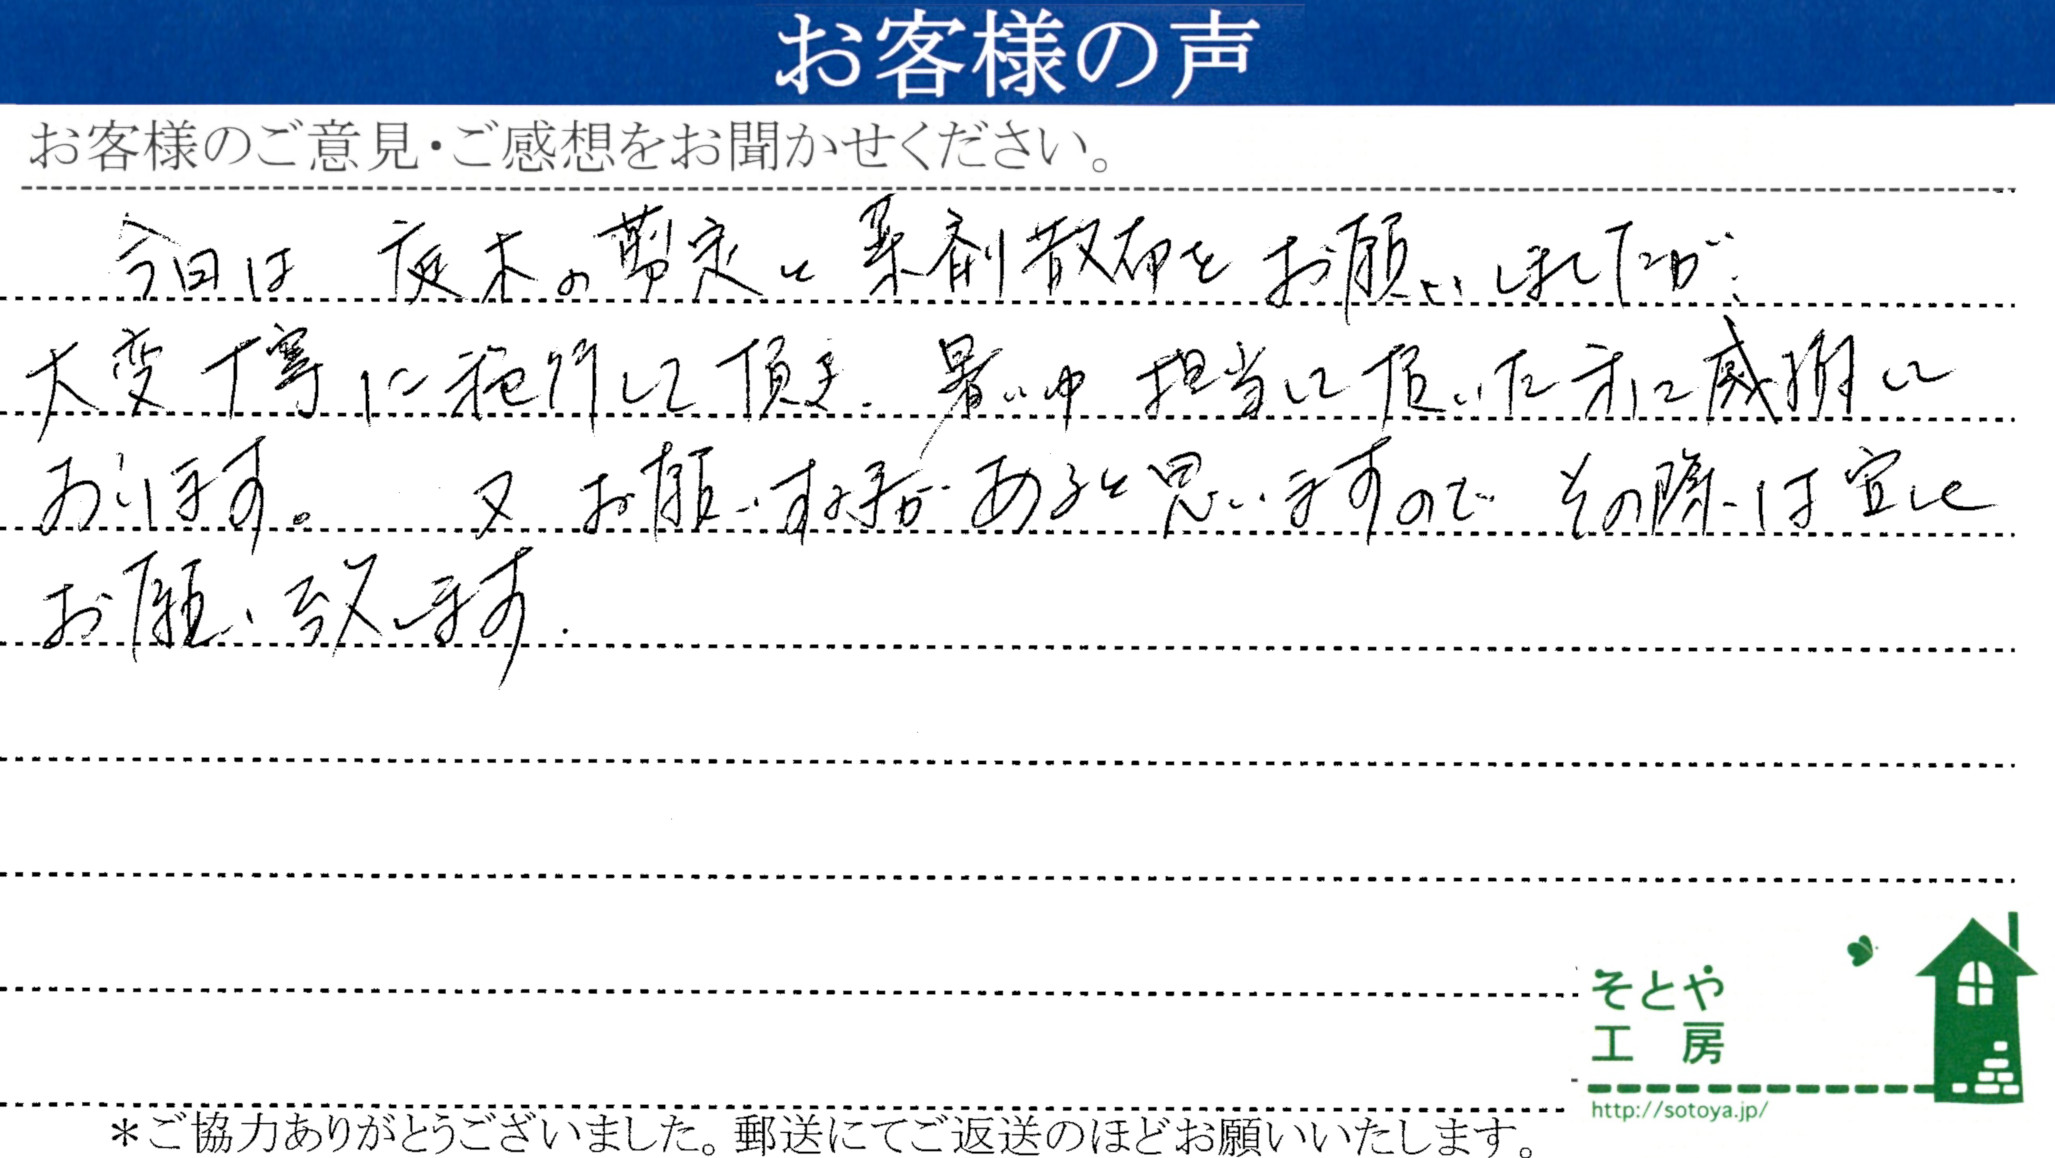 お客様の声
お客様のご意見・ご感想をお聞かせください。
今日は 庭木の剪定と薬剤散布をお願いしましたが、
大変丁寧に施行して頂き、暑い中 担当して頂いた方に感謝して
おります。 又 お願いする事があると思いますので その際は宜しく
お願い致します.
そとや
工 房
http://sotoya.jp/
＊ご協力ありがとうございました。郵送にてご返送のほどお願いいたします。